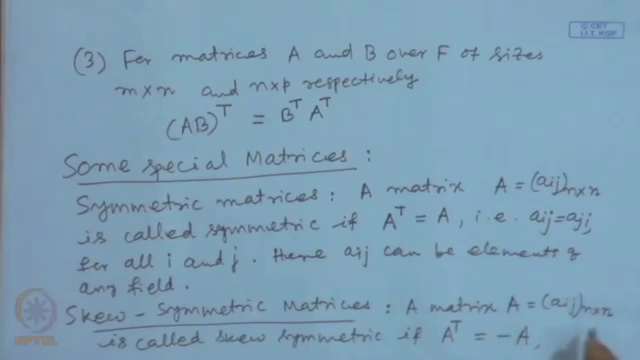 © CET
I.I.T. KGP
(3) For matrices A and B over F of sizes
m×n and n×p respectively
(AB)^T = B^T A^T
Some special Matrices :
Symmetric matrices : A matrix A = (aij)n×n
is called symmetric if A^T = A, i.e aij = aji
for all i and j. Here aij can be elements of
any field.
Skew - Symmetric Matrices : A matrix A = (aij)n×n
is called skew symmetric if A^T = -A,
NPTEL